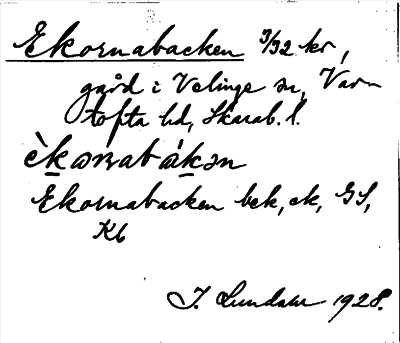 Ekornabacken 3/32 kr,
gård i Velinge sn, Var-
tofta hd, Skarab. l.
èkornabákən
Ekornabacken bek, ek, GS,
Kb
J. Lundahl 1928.